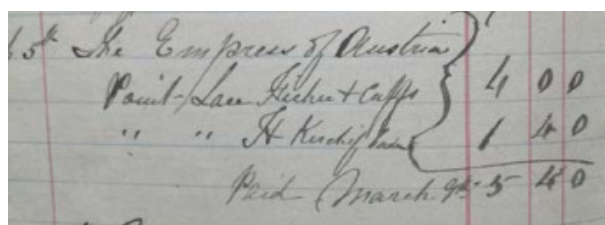 5th The Empress of Austria
Point Lace Fichu + Cuffs 4 0 0
" " H Kerchif 1 4 0
Paid March 9th 5 4 0